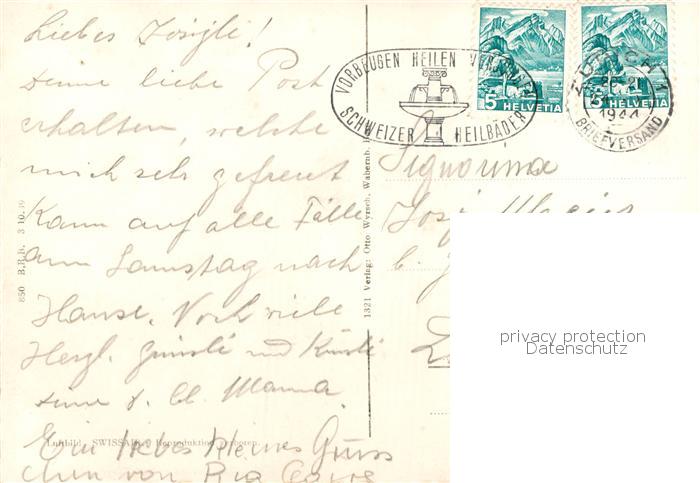 Liebes Josyli!
Deine liebe Post
erhalten, welche
mich sehr gefreut
Kann auf alle Fälle
am Samstag nach
Hause. Noch viele
Herzl. Grüssli und Küssli
deine d. lb. Mamma
Ein liebes kleines Grüss
chen von Pia
Luftbild SWISSAIR Reproduktion verboten.
850 B.R.B. 3 10. 39
1321 Verlag: Otto Wyrsch, Wabernb.
VORBEUGEN HEILEN VERJÜNGEN
SCHWEIZER HEILBÄDER
5 HELVETIA
5 HELVETIA
ZÜRICH 1
1944
BRIEFVERSAND
Signorina
privacy protection
Datenschutz